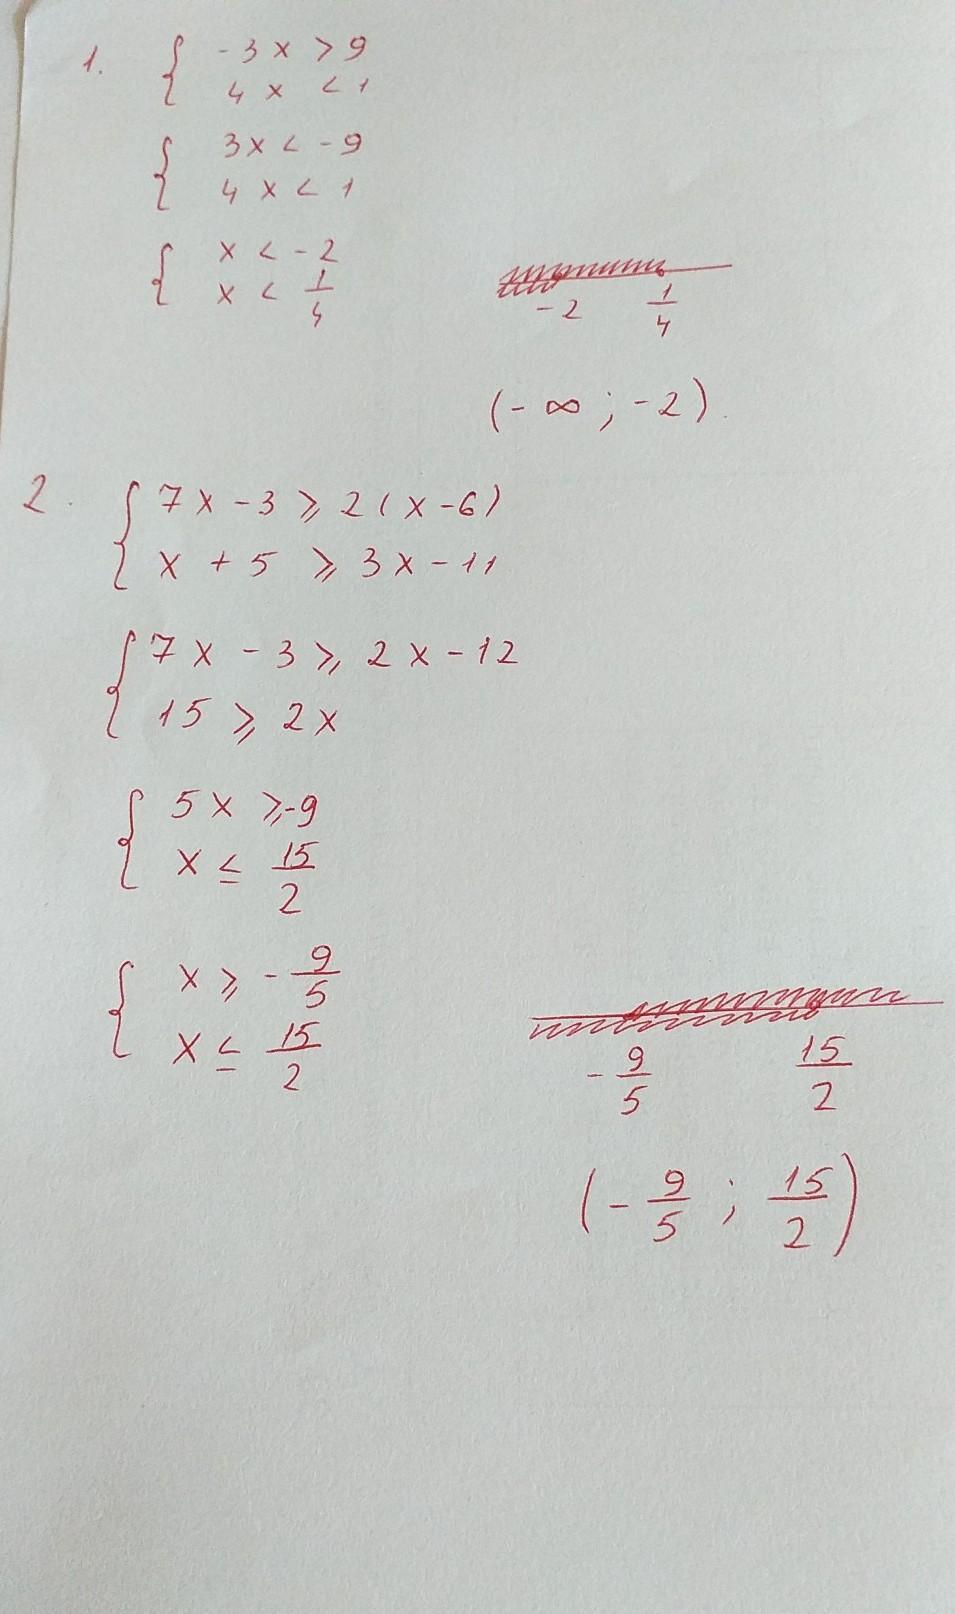 1. { -3x > 9
4x < 1
{ 3x < -9
4x < 1
{ x < -2
x < 1/4
-2 1/4
(-∞; -2).
2. { 7x - 3 ⩾ 2(x-6)
x + 5 ⩾ 3x - 11
{ 7x - 3 ⩾ 2x - 12
15 ⩾ 2x
{ 5x ⩾ -9
x ≤ 15/2
{ x ⩾ - 9/5
x ≤ 15/2
- 9/5 15/2
(- 9/5 ; 15/2)